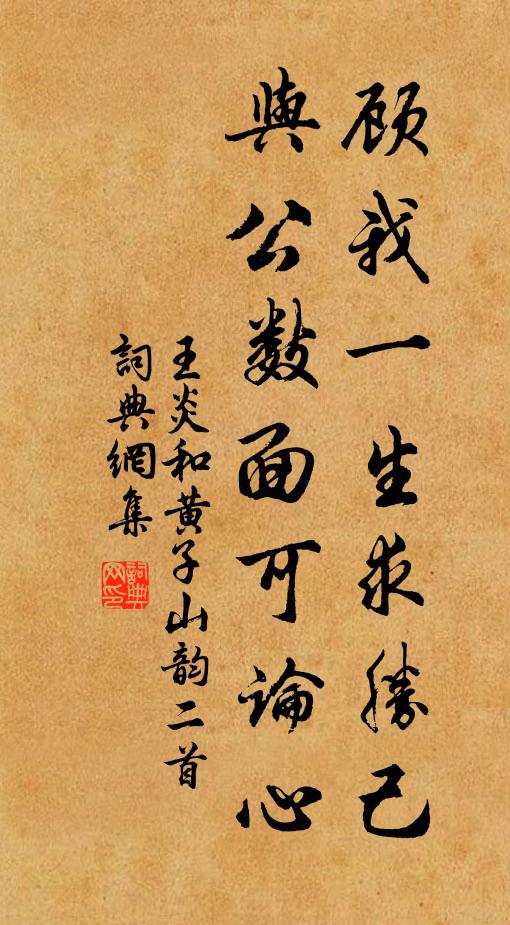 顾我一生求勝己
與公数面可論心
王炎和黄子山韵二首
詞典網集
詞典網印